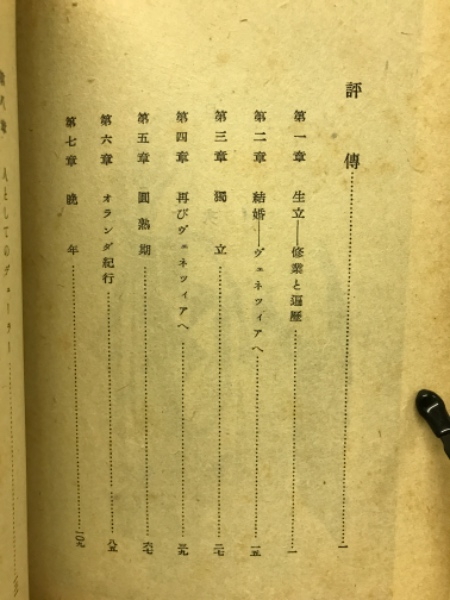 評傳……一
第一章 生立──修業と遍歷……一
第二章 結婚──ヴェネツィアへ……一五
第三章 獨立……二七
第四章 再びヴェネツィアへ……三九
第五章 圓熟期……六七
第六章 オランダ紀行……八五
第七章 晩年……一〇九
人としてのデューラー